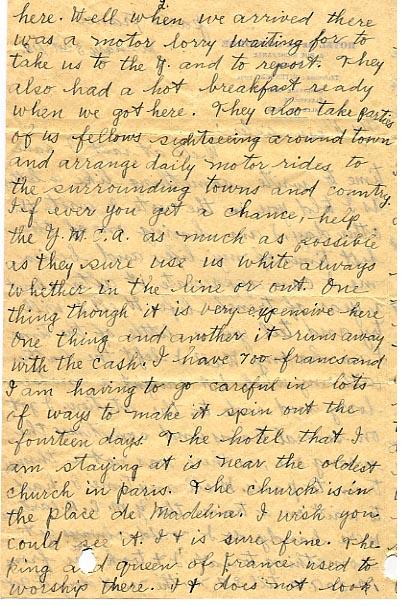 2.
here. Well when we arrived there
was a motor lorry waiting for to
take us to the Y. and to report. They
also had a hot breakfast ready
when we got here. They also take parties
of us fellows sightseeing around town
and arrange daily motor rides to
the surrounding towns and country.
If ever you get a chance, help
the Y.M.C.A. as much as possible
as they sure use us white always
whether in the line or out. One
thing though it is very expensive here
one thing and another it runs away
with the cash. I have 700 francs and
I am having to go careful in lots
of ways to make it spin out the
fourteen days The hotel that I
am staying at is near the oldest
church in paris. The church is in
the place de Madeline. I wish you
could see it. It is sure fine. The
king and queen of france used to
worship there. It does not look